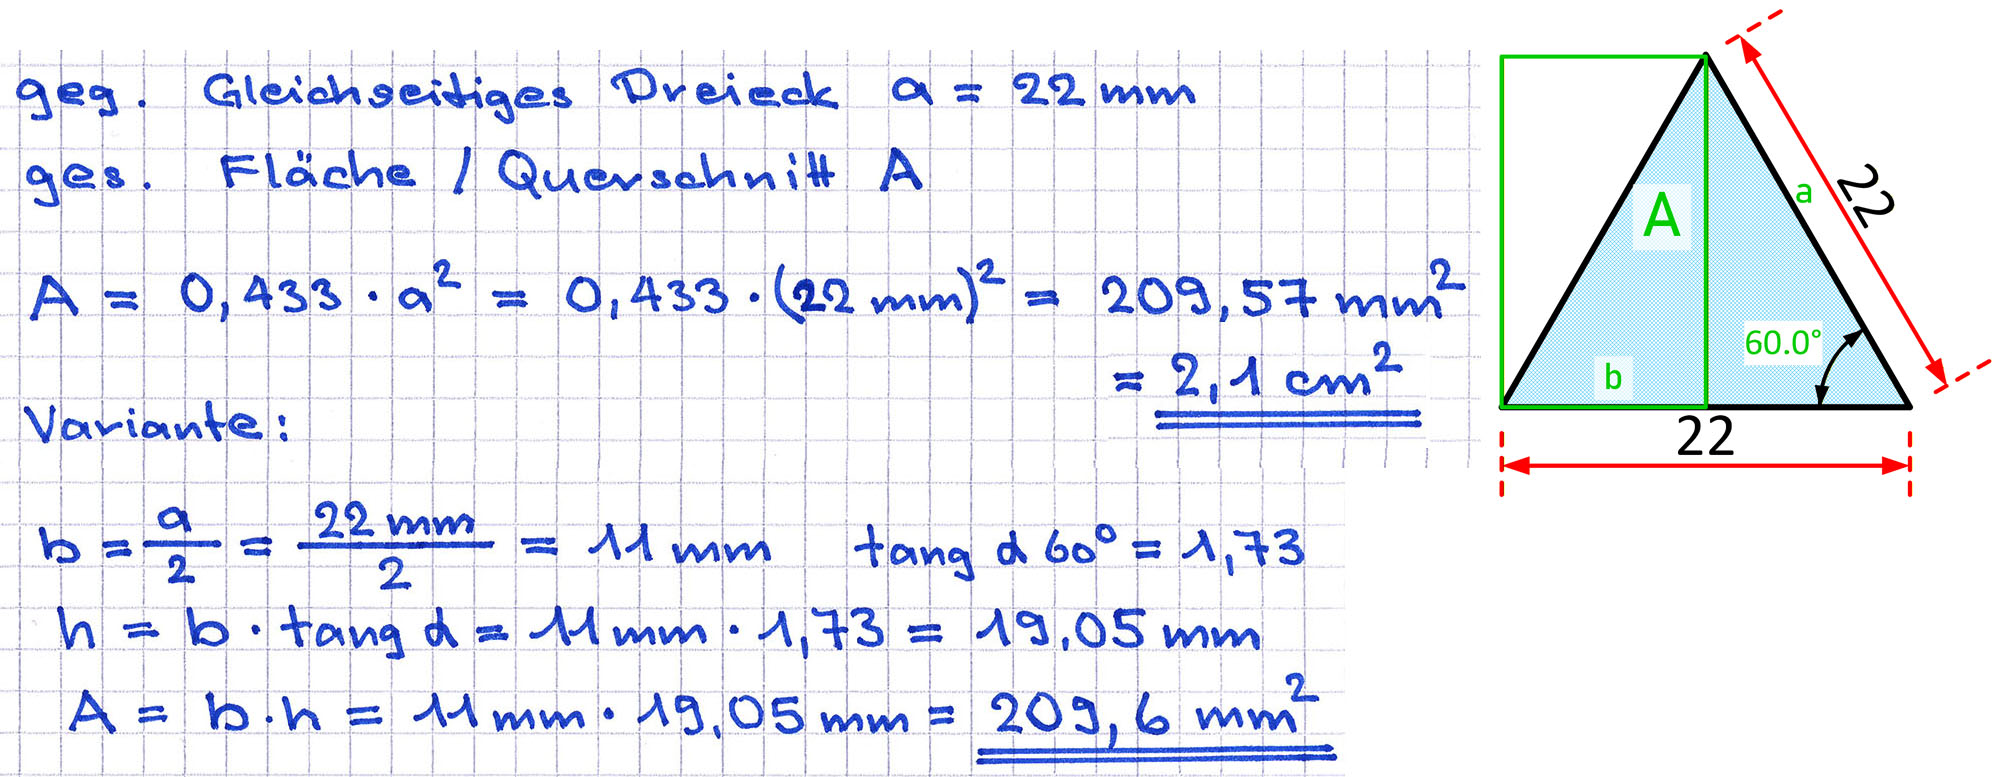 geg. Gleichseitiges Dreieck a = 22 mm
ges. Fläche / Querschnitt A
A = 0,433 · a² = 0,433 · (22 mm)² = 209,57 mm²
= 2,1 cm²
Variante:
b = a/2 = 22 mm/2 = 11 mm tang α 60° = 1,73
h = b · tang α = 11 mm · 1,73 = 19,05 mm
A = b · h = 11 mm · 19,05 mm = 209,6 mm²
A
a
22
60.0°
b
22